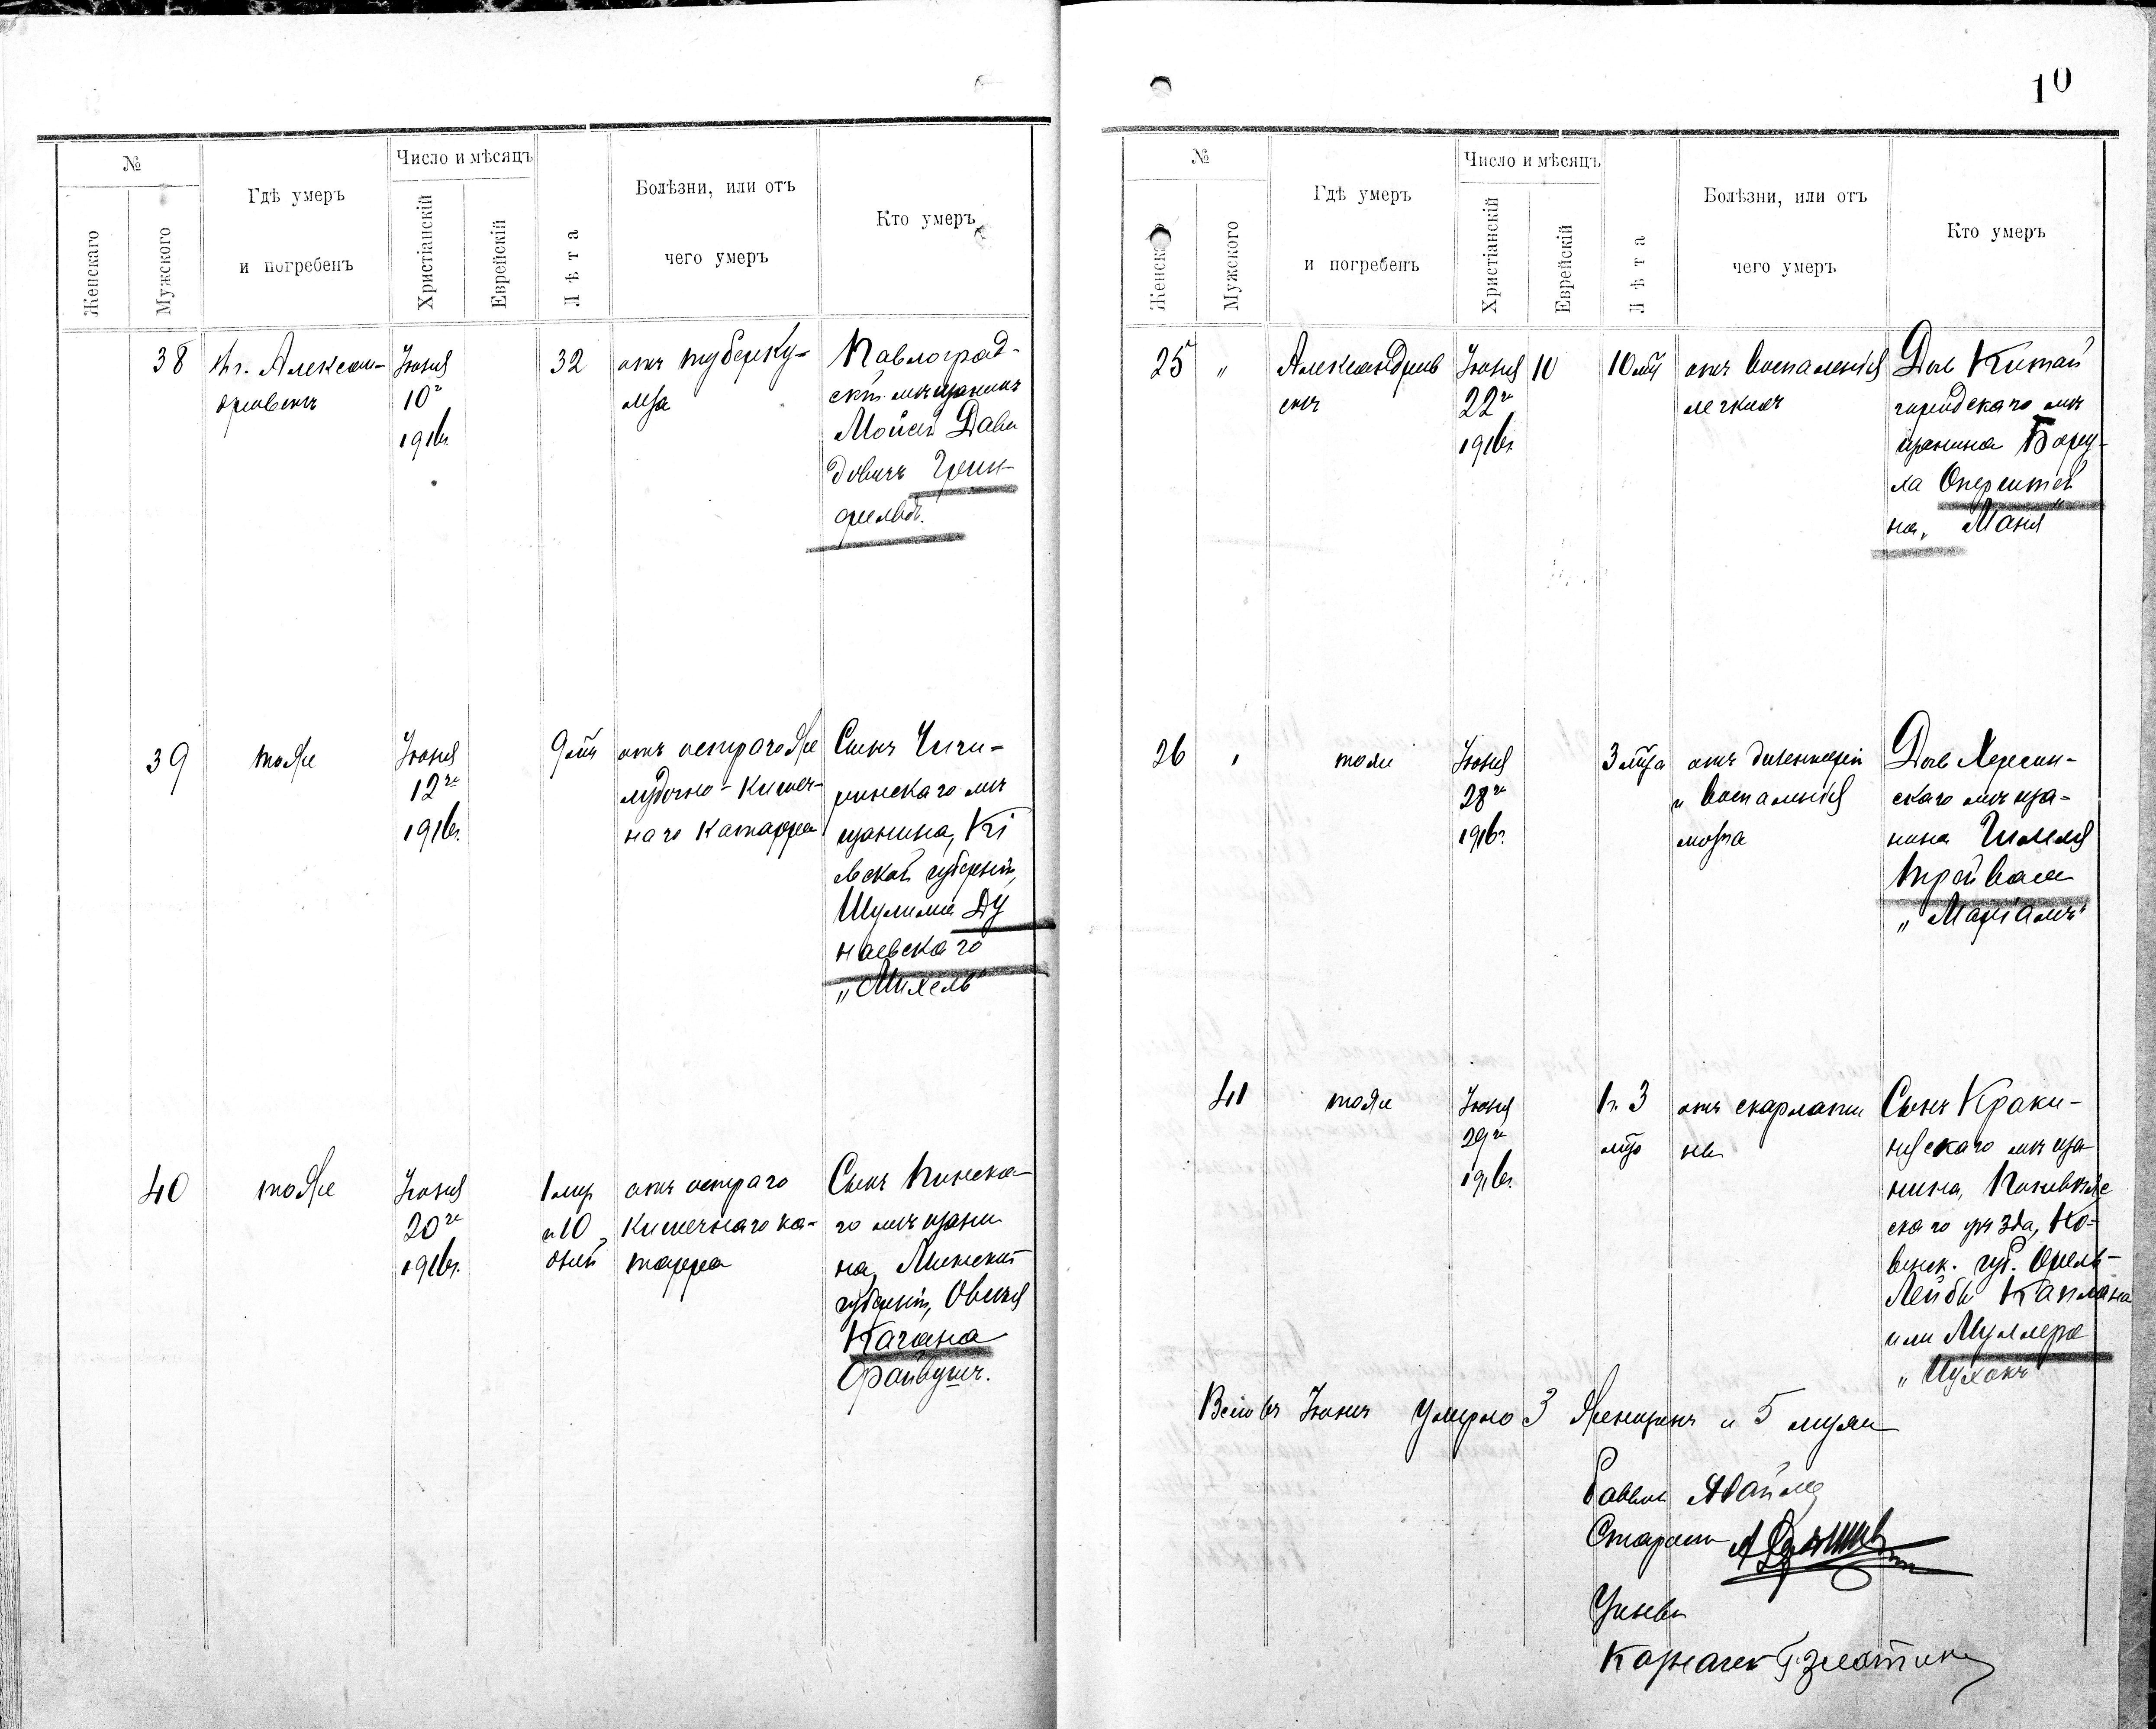 №
Женскаго
Мужского
Гдѣ умеръ
и погребенъ
Число и мѣсяцъ
Христіанскій
Еврейскій
Лѣта
Болѣзни, или отъ
чего умеръ
Кто умеръ
38
въ г. Алексан-
дровскѣ
Іюня
10го
1916г.
32
отъ туберку-
леза
Павлоград-
скій мѣщанинъ
Моисей Дави
довичъ Грин-
фельдъ.
39
тоже
Іюня
12го
1916г.
9 мѣс
отъ остраго же
лудочно-кишеч-
наго катарра
Сынъ Чиги-
ринскаго мѣ
щанина, Кі
евской губерніи,
Шулима Ду
наевскаго
„Михель“
40
тоже
Іюня
20го
1916г.
1 мѣс
и 10
дней
отъ остраго
кишечнаго ка-
тарра
Сынъ Пинска-
го мѣщани
на, Минской
губерніи, Овсея
Кагана
Файвушъ.
10
№
Женскаго
Мужского
Гдѣ умеръ
и погребенъ
Число и мѣсяцъ
Христіанскій
Еврейскій
Лѣта
Болѣзни, или отъ
чего умеръ
Кто умеръ
25
„
Александров
скъ
Іюня
22го
1916г.
10
10 мѣс
отъ воспаленія
легкихъ
Дочь Китай
городскаго мѣ
щанина Бору-
ха Оперштей
на „Маня“
26
„
тоже
Іюня
28го
1916г.
3 мѣсяца
отъ дизентеріи
и воспаленія
мозга
Дочь Херсон-
скаго мѣща-
нина Шмеля
Трейваса
„Маріамъ“
41
тоже
Іюня
29го
1916г.
1г. 3
мѣс
отъ скарлати
ны
Сынъ Краки-
новскаго мѣща
нина, Поневѣж
скаго уѣзда, Ко-
венск. губ. Орель-
Лейбы Каплана
или Муллера
„Ицхокъ“
Всего въ Іюнѣ умерло 3 женщинъ и 5 мужч
Раввинъ
Староста
Казначей Г. Золотник